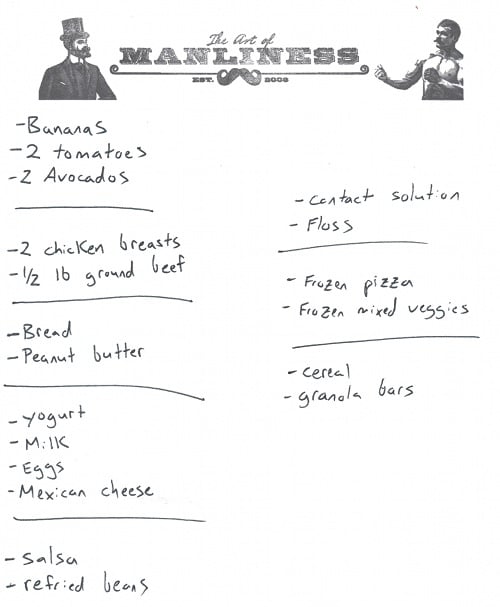 The Art of
MANLINESS
EST. 2008
-Bananas
-2 tomatoes
-2 Avocados
-2 chicken breasts
-1/2 lb ground beef
-Bread
-Peanut butter
-yogurt
-Milk
-Eggs
-Mexican cheese
-salsa
-refried beans
-Contact solution
-Floss
-Frozen pizza
-Frozen mixed veggies
-cereal
-granola bars